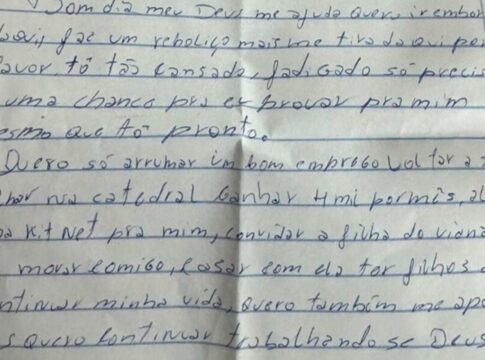 Bom dia meu Deus me ajuda quero ir embor
pai, faz um reboliço mais me tira daqui por
avor, tô tão cansado, fadigado só precis
uma chance pra eu provar pra mim
esmo que tô pronto.
Quero só arrumar um bom emprego voltar a
har na catedral Ganhar 4 mil por mês, al
a Kit Net pra mim, convidar a filha do viana
morar comigo, casar com ela ter filhos
ntinuar minha vida, quero também me apo
s quero continuar trabalhando se Deus